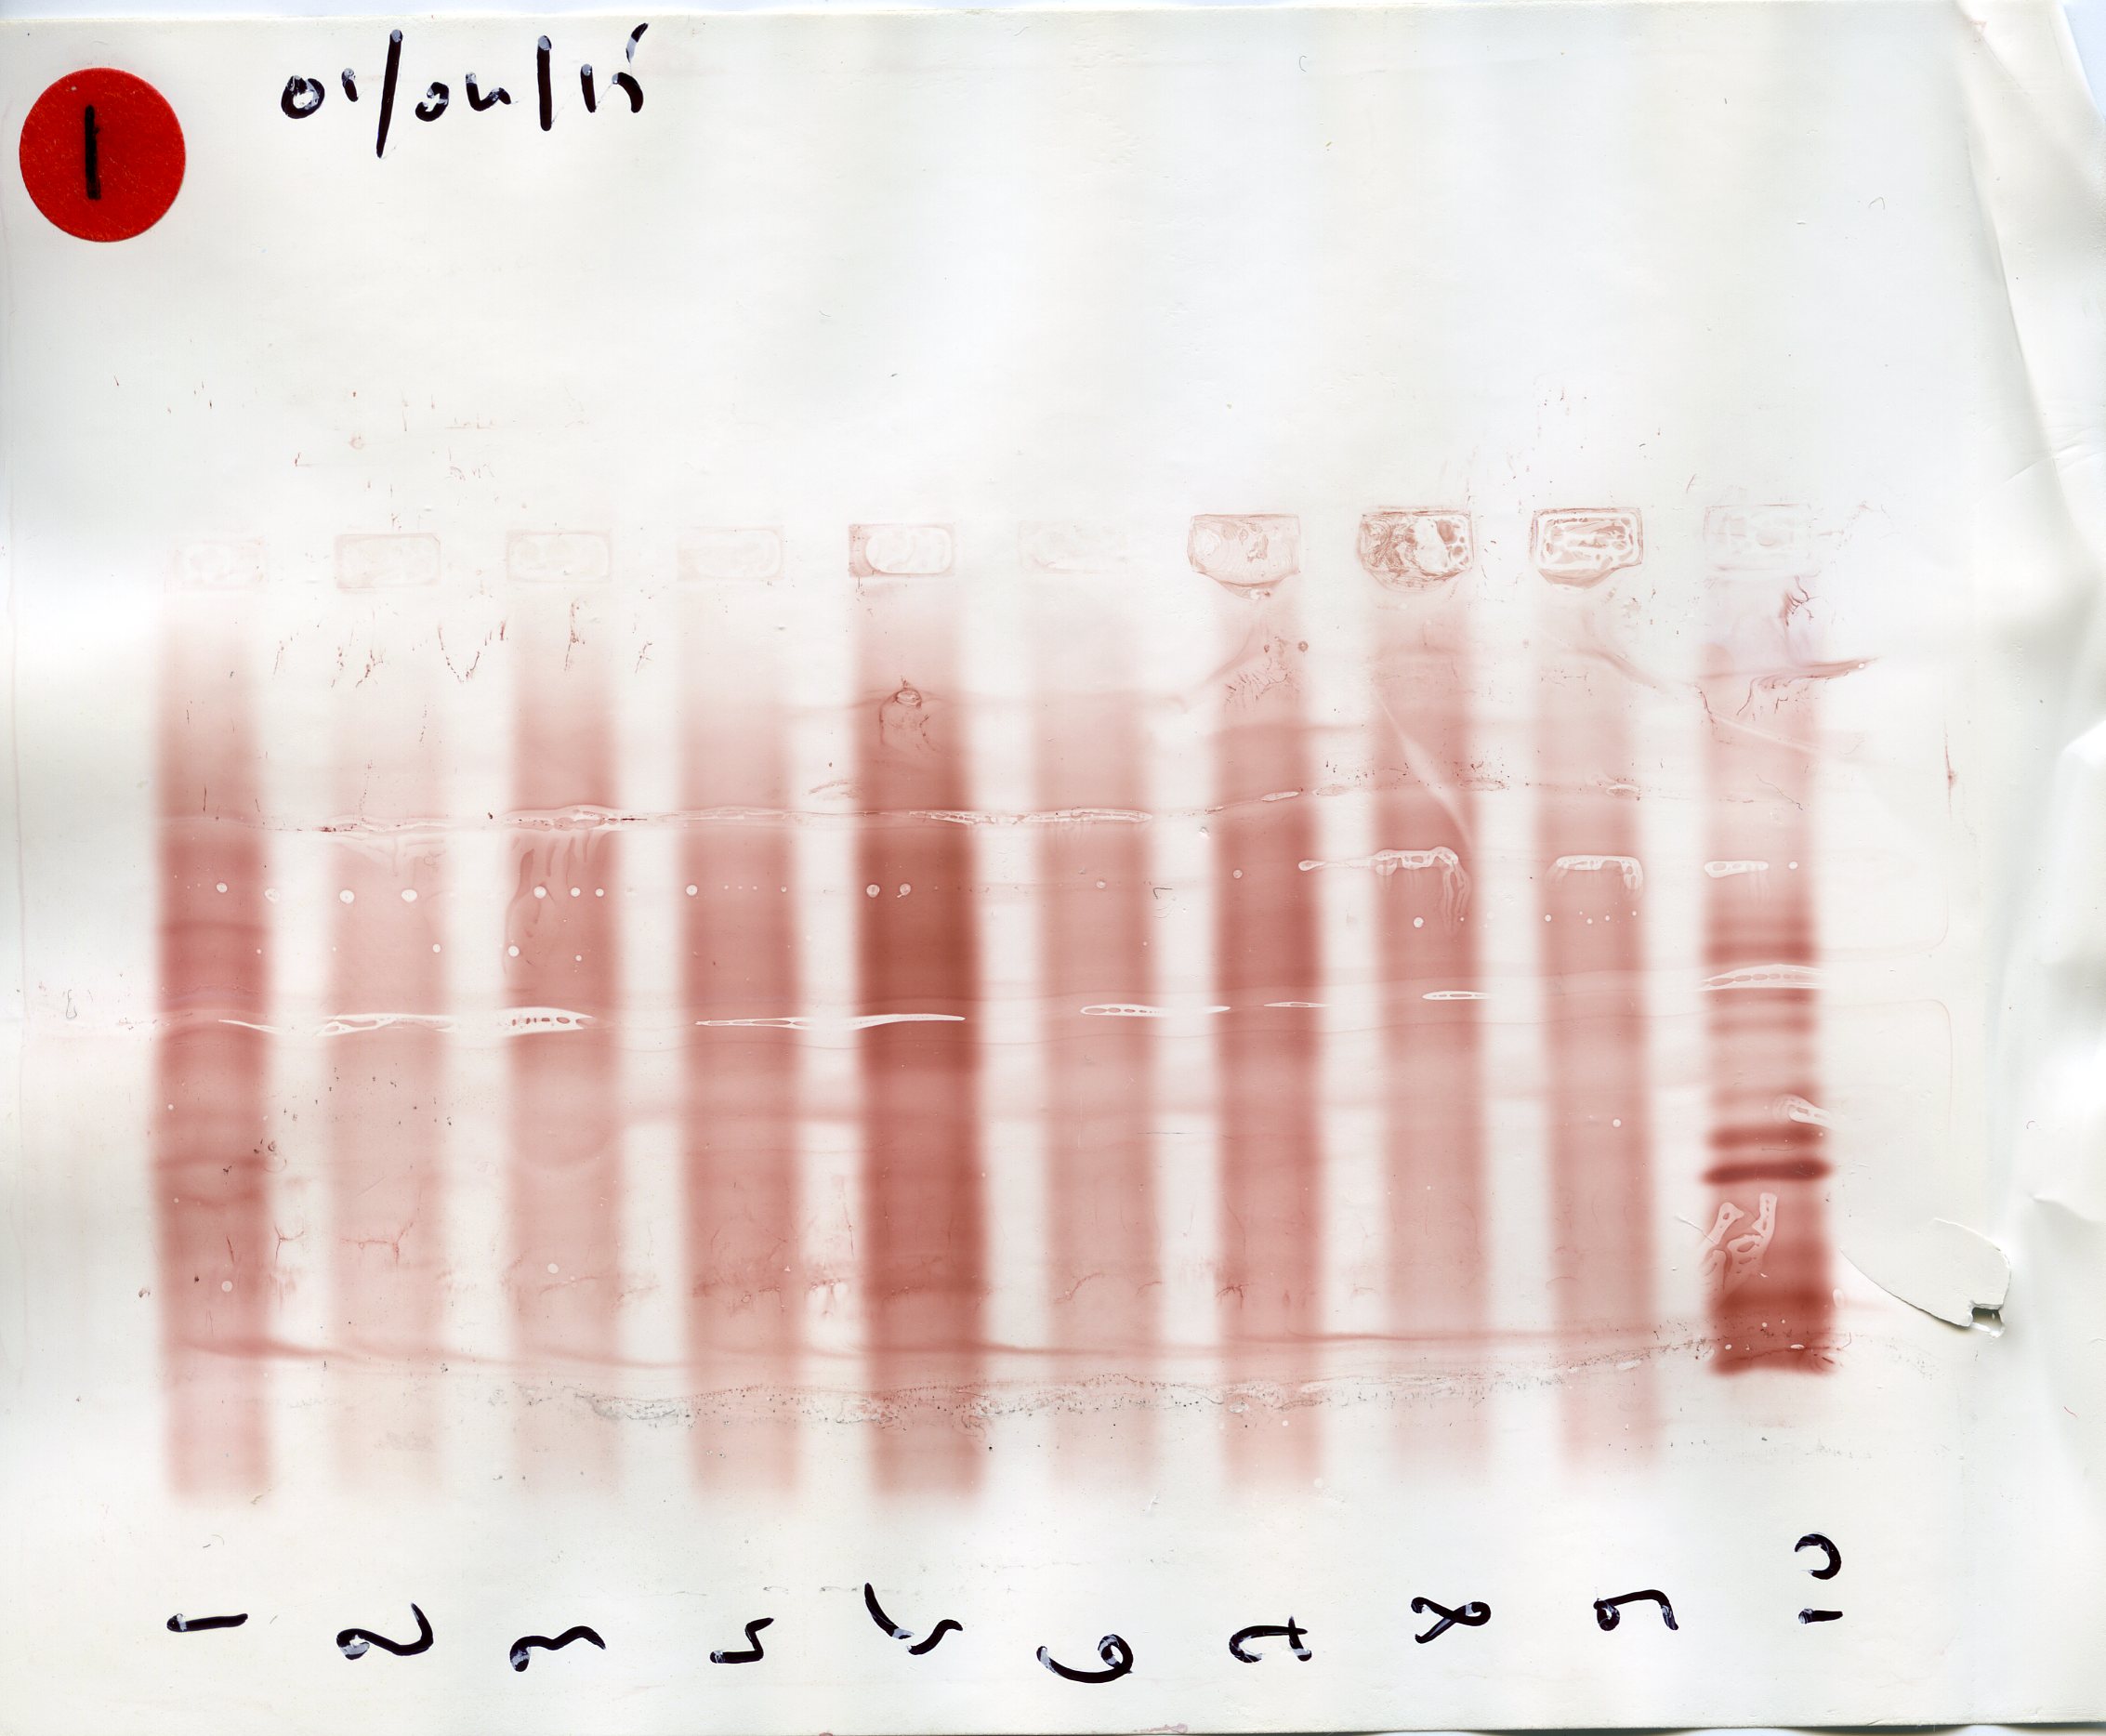 1
01/04/15
1 2 3 4 5 6 7 8 9 10